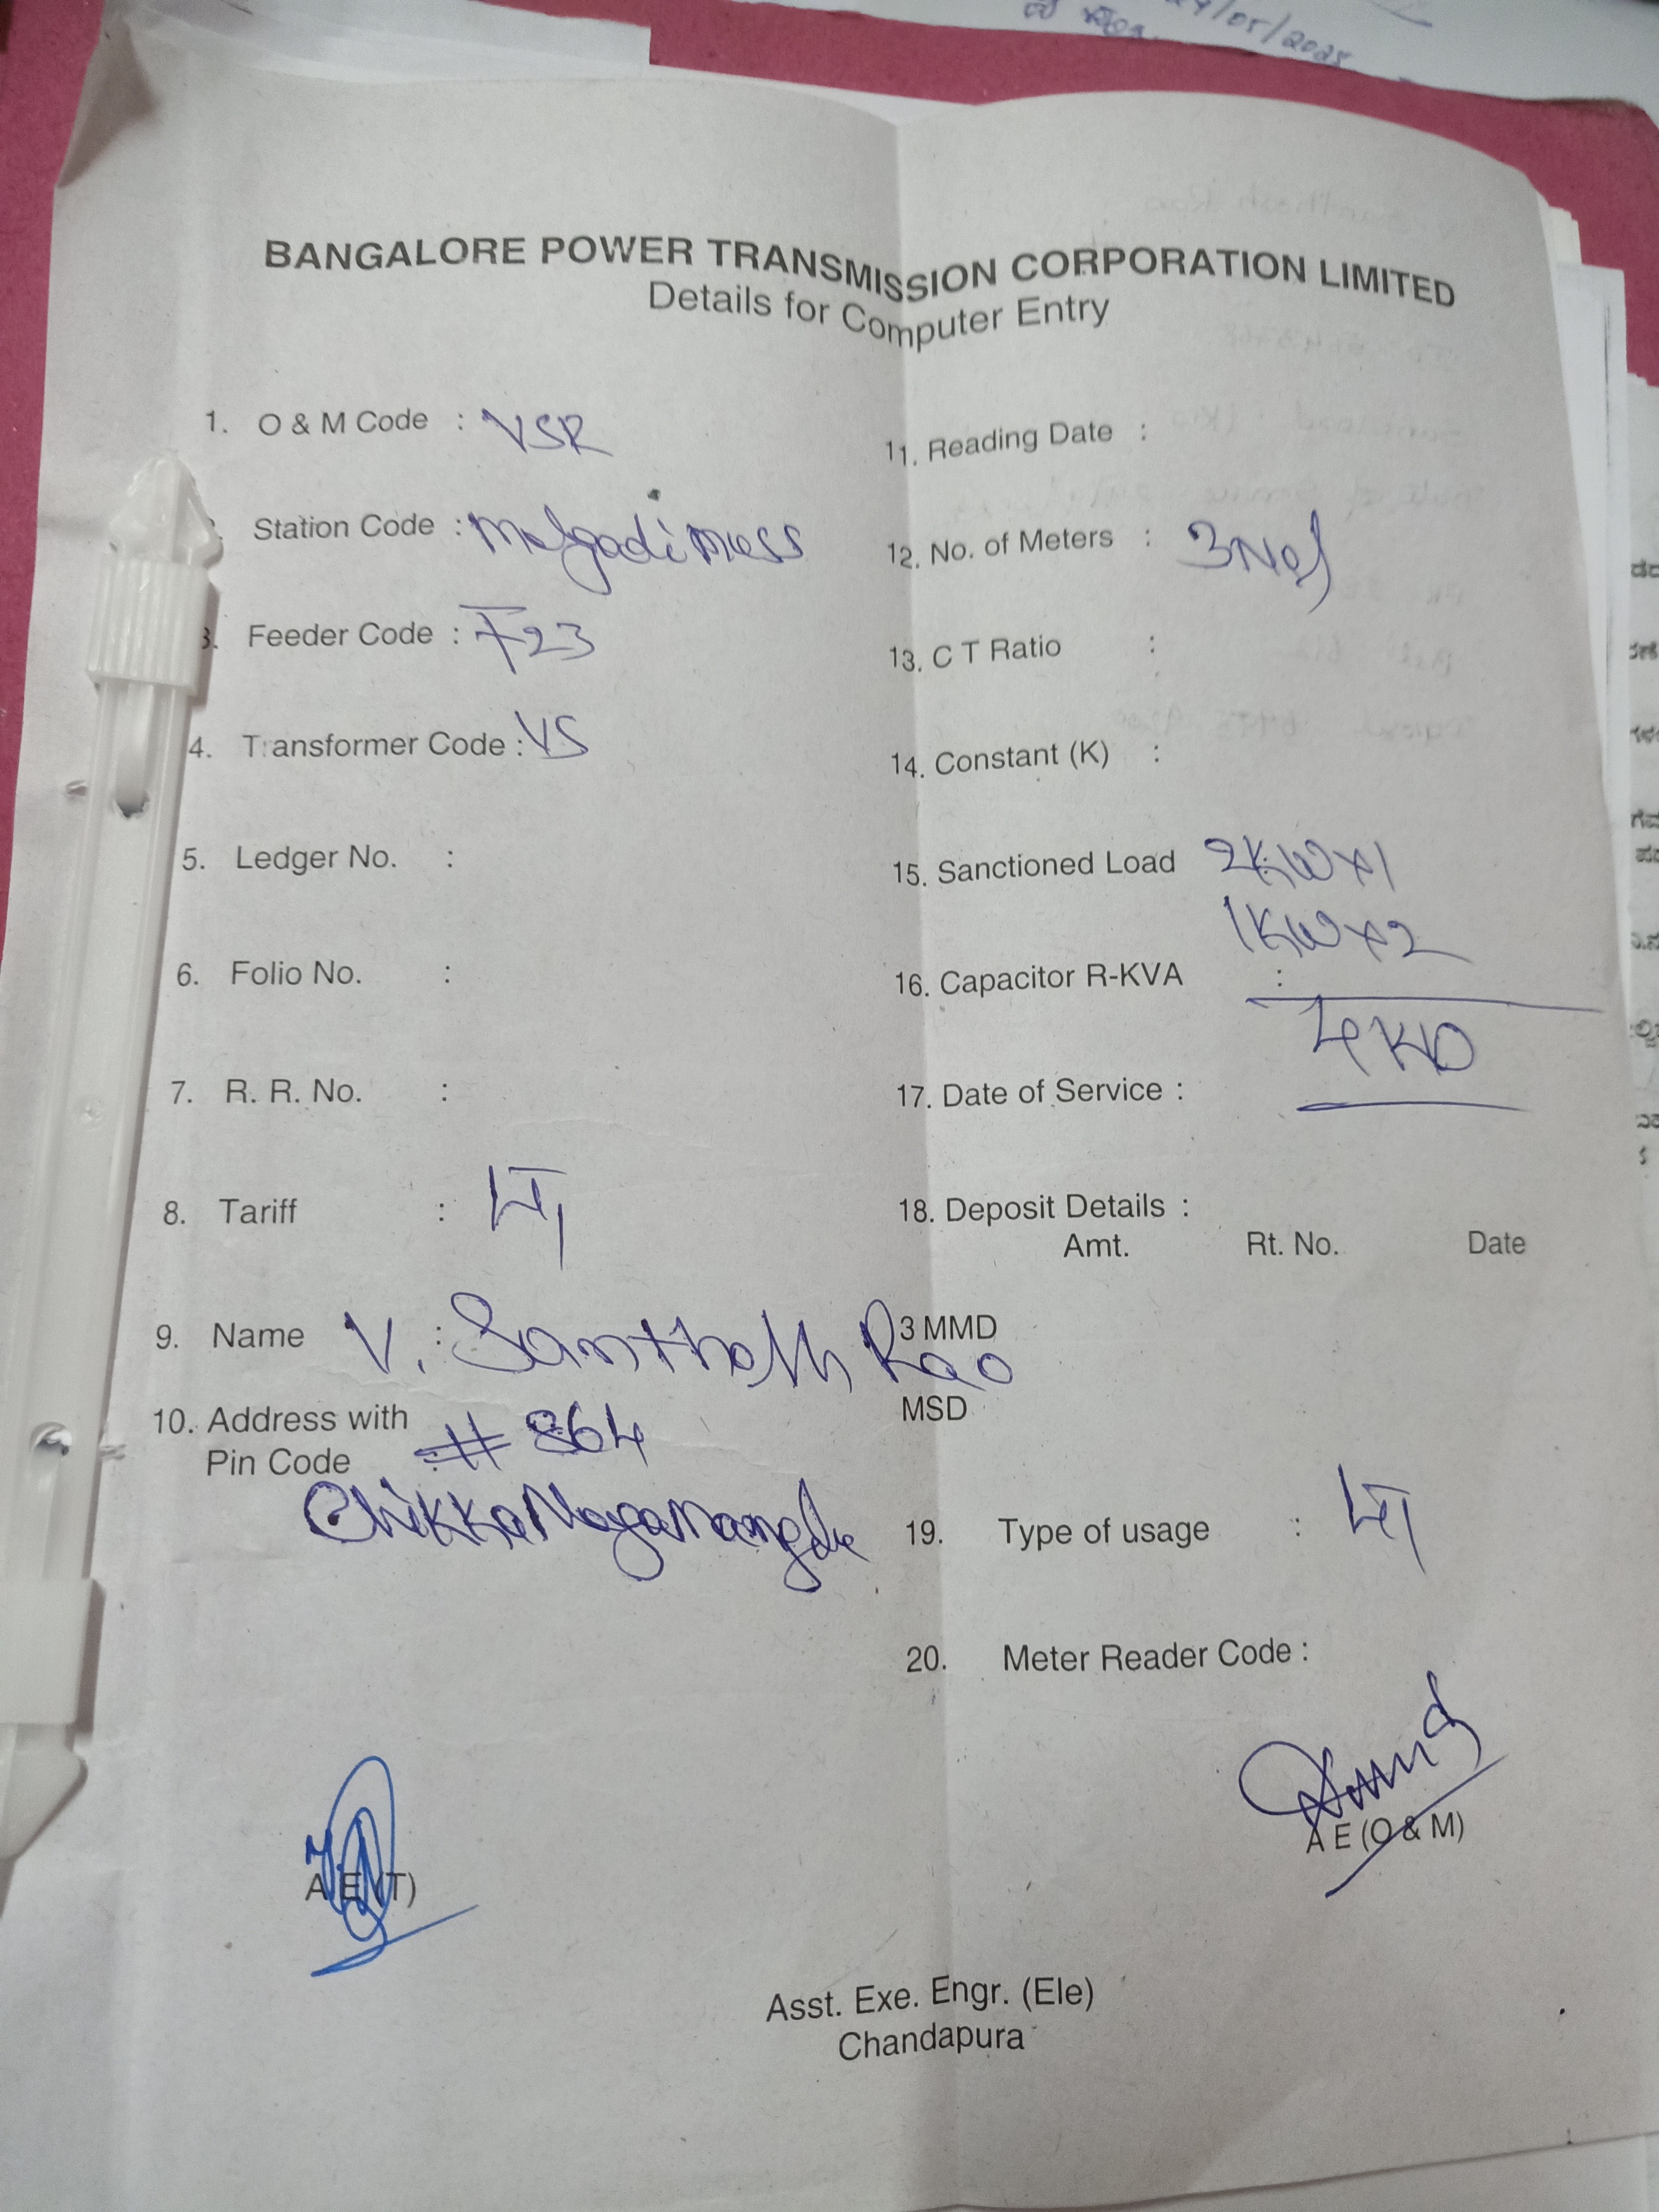 /05/2025
BANGALORE POWER TRANSMISSION CORPORATION LIMITED
Details for Computer Entry
1. O & M Code : VSR
Station Code : Malgadi MUSS
3. Feeder Code : F23
4. Transformer Code : VS
5. Ledger No. :
6. Folio No. :
7. R. R. No. :
8. Tariff : LT1
9. Name : V. Santhosh Rao
10. Address with
Pin Code : # 864
Chikka Nagamangala
11. Reading Date :
12. No. of Meters : 3 Nos
13. C T Ratio :
14. Constant (K) :
15. Sanctioned Load 2KW x 1
1KW x 2
16. Capacitor R-KVA :
4KW
17. Date of Service :
18. Deposit Details :
Amt. Rt. No. Date
3 MMD
MSD
19. Type of usage : LT1
20. Meter Reader Code :
A E (T)
A E (O & M)
Asst. Exe. Engr. (Ele)
Chandapura